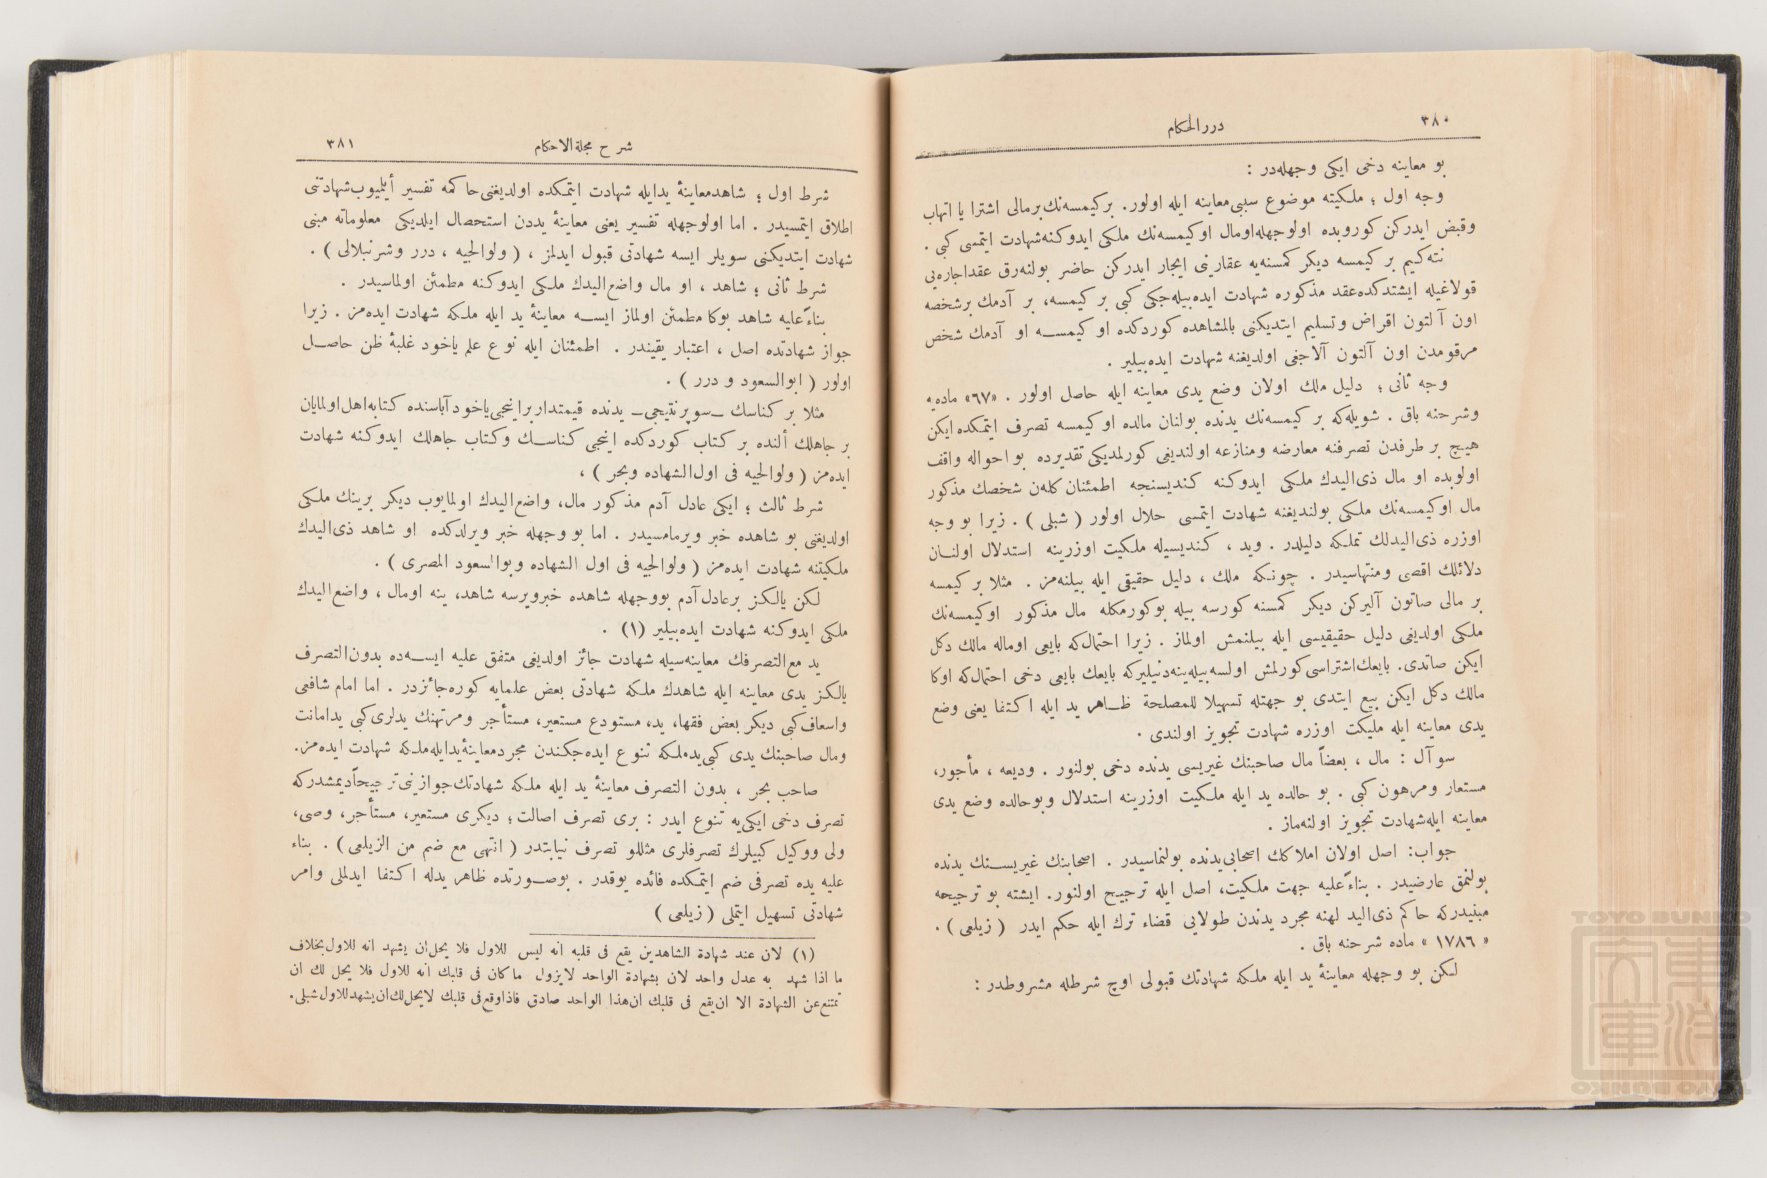 ٣٨٠
دررالحكام
بو معاينه دخى ايكى وجهله‌در :
وجه اول ؛ ملكيته موضوع سببى معاينه ايله اولور. بركيمسه‌نك‌برمالى اشترا يا اتهاب
وقبض ايدركن كوروبده اولوجهله‌اومال اوكيمسه‌نك ملكى ايدوكنه‌شهادت ايتمسى كبى .
نته‌كيم بر كيمسه ديكر كمسنه‌يه عقارينى ايجار ايدركن حاضر بولنه‌رق عقداجاره‌يى
قولاغيله ايشتدكده‌عقد مذكوره شهادت ايده‌بيله‌جكى كبى بر كيمسه، بر آدمك برشخصه
اون آلتون اقراض وتسليم ايتديكنى بالمشاهده كوردكده او كيمسه او آدمك شخص
مرقومدن اون آلتون آلاجغى اولديغنه شهادت ايده‌بيلير .
وجه ثانى ؛ دليل ملك اولان وضع يدى معاينه ايله حاصل اولور . «٦٧» ماده‌يه
وشرحنه باق . شويله‌كه بر كيمسه‌نك يدنده بولنان مالده اوكيمسه تصرف ايتمكده ايكن
هيچ بر طرفدن تصرفنه معارضه ومنازعه اولنديغى كورلمديكى تقديرده بو احواله واقف
اولوبده او مال ذى‌اليدك ملكى ايدوكنه كنديسنجه اطمئنان كله‌ن شخصك مذكور
مال اوكيمسه‌نك ملكى بولنديغنه شهادت ايتمسى حلال اولور ( شبلى ) . زيرا بو وجه
اوزره ذى‌اليدلك تملكه دليلدر . ويد ، كنديسيله ملكيت اوزرينه استدلال اولنان
دلائلك اقصى ومنتهاسيدر . چونكه ملك ، دليل حقيقى ايله بيلنه‌مز . مثلا بر كيمسه
بر مالى صاتون آليركن ديكر كمسنه كورسه بيله بوكورمكله مال مذكور اوكيمسه‌نك
ملكى اولديغى دليل حقيقيسى ايله بيلنمش اولماز . زيرا احتمال‌كه بايعى اوماله مالك دكل
ايكن صاتدى. بايعك‌اشتراسى‌كورلمش اولسه‌بيله‌ينه‌دنيليركه بايعك بايعى دخى احتمال‌كه اوكا
مالك دكل ايكن بيع ايتدى بو جهتله تسهيلا للمصلحة ظاهر يد ايله اكتفا يعنى وضع
يدى معاينه ايله ملكيت اوزره شهادت تجويز اولندى .
سوآل : مال ، بعضاً مال صاحبنك غيريسى يدنده دخى بولنور . وديعه ، مأجور،
مستعار ومرهون كبى . بو حالده يد ايله ملكيت اوزرينه استدلال وبوحالده وضع يدى
معاينه ايله‌شهادت تجويز اولنه‌ماز .
جواب: اصل اولان املاكك اصحابى‌يدنده بولنماسيدر . اصحابنك غيريسنك يدنده
بولنمق عارضيدر . بناءً عليه جهت ملكيت، اصل ايله ترجيح اولنور. ايشته بو ترجيحه
مبنيدركه حاكم ذى‌اليد لهنه مجرد يدندن طولايى قضاء ترك ايله حكم ايدر ( زيلعى ) .
« ١٧٨٦ » ماده شرحنه باق .
لكن بو وجهله معاينهٔ يد ايله ملكه شهادتك قبولى اوچ شرطله مشروطدر :
٣٨١
شرح مجلة الاحكام
شرط اول ؛ شاهدمعاينهٔ يدايله شهادت ايتمكده اولديغنى‌حاكمه تفسير أيليوب‌شهادتنى
اطلاق ايتمسيدر . اما اولوجهله تفسير يعنى معاينهٔ يددن استحصال ايلديكى معلوماته مبنى
شهادت ايتديكنى سويلر ايسه شهادتى قبول ايدلمز ، ( ولوالجيه ، درر وشرنبلالى ) .
شرط ثانى ؛ شاهد ، او مال واضع‌اليدك ملكى ايدوكنه مطمئن اولماسيدر .
بناءً عليه شاهد بوكا مطمئن اولماز ايسه معاينهٔ يد ايله ملكه شهادت ايده‌مز . زيرا
جواز شهادتده اصل ، اعتبار يقيندر . اطمئنان ايله نوع علم ياخود غلبهٔ ظن حاصل
اولور ( ابوالسعود و درر ) .
مثلا بر كناسك ـسوپرنتيجى‌ـ يدنده قيمتدار برانجى‌ياخود آباسنده كتابه‌اهل‌اولمايان
بر جاهلك ألنده بر كتاب كوردكده انجى كناسك وكتاب جاهلك ايدوكنه شهادت
ايده‌مز ( ولوالجيه فى اول‌الشهاده وبحر ) ،
شرط ثالث ؛ ايكى عادل آدم مذكور مال، واضع‌اليدك اولمايوب ديكر برينك ملكى
اولديغنى بو شاهده خبر ويرمامسيدر . اما بو وجهله خبر ويرلدكده او شاهد ذى‌اليدك
ملكيتنه شهادت ايده‌مز ( ولوالجيه فى اول الشهاده وبوالسعود المصرى ) .
لكن يالكز برعادل‌آدم بووجهله شاهده خبرويرسه شاهد، ينه اومال ، واضع‌اليدك
ملكى ايدوكنه شهادت ايده‌بيلير (١) .
يد مع‌التصرفك معاينه‌سيله شهادت جائز اولديغى متفق عليه ايسه‌ده بدون‌التصرف
يالكز يدى معاينه ايله شاهدك ملكه شهادتى بعض علمايه كوره‌جائزدر . اما امام شافعى
واسعاف‌كبى ديكر بعض فقها، يد، مستودع مستعير، مستأجر ومرتهنك يدلرى‌كبى يدامانت
ومال صاحبنك يدى كبى‌يدملكه تنوع ايده‌جكندن مجرد معاينهٔ‌يدايله‌ملكه شهادت ايده‌مز.
صاحب بحر ، بدون التصرف معاينهٔ يد ايله ملكه شهادتك جوازينى ترجيحاًديمشدركه
تصرف دخى ايكى‌يه تنوع ايدر : برى تصرف اصالت؛ ديكرى مستعير، مستأجر، وصى،
ولى ووكيل كبيلرك تصرفلرى مثللو تصرف نيابتدر ( انتهى مع ضم من الزيلعى ) . بناء
عليه يده تصرفى ضم ايتمكده فائده يوقدر . بوصورتده ظاهر يدله اكتفا ايدلملى وامر
شهادتى تسهيل ايتملى ( زيلعى )
(١) لان عند شهادة الشاهدين يقع فى قلبه انه ليس للاول فلا يحل‌ان يشهد انه للاول‌بخلاف
ما اذا شهد به عدل واحد لان بشهادة الواحد لايزول ماكان فى قلبك انه للاول فلا يحل لك ان
تمتنع‌عن الشهادة الا ان‌يقع فى قلبك ان‌هذا الواحد صادق فاذاوقع‌فى قلبك لايحل‌لك‌ان‌يشهدللاول‌شبلى.
TOYO BUNKO
東洋文庫